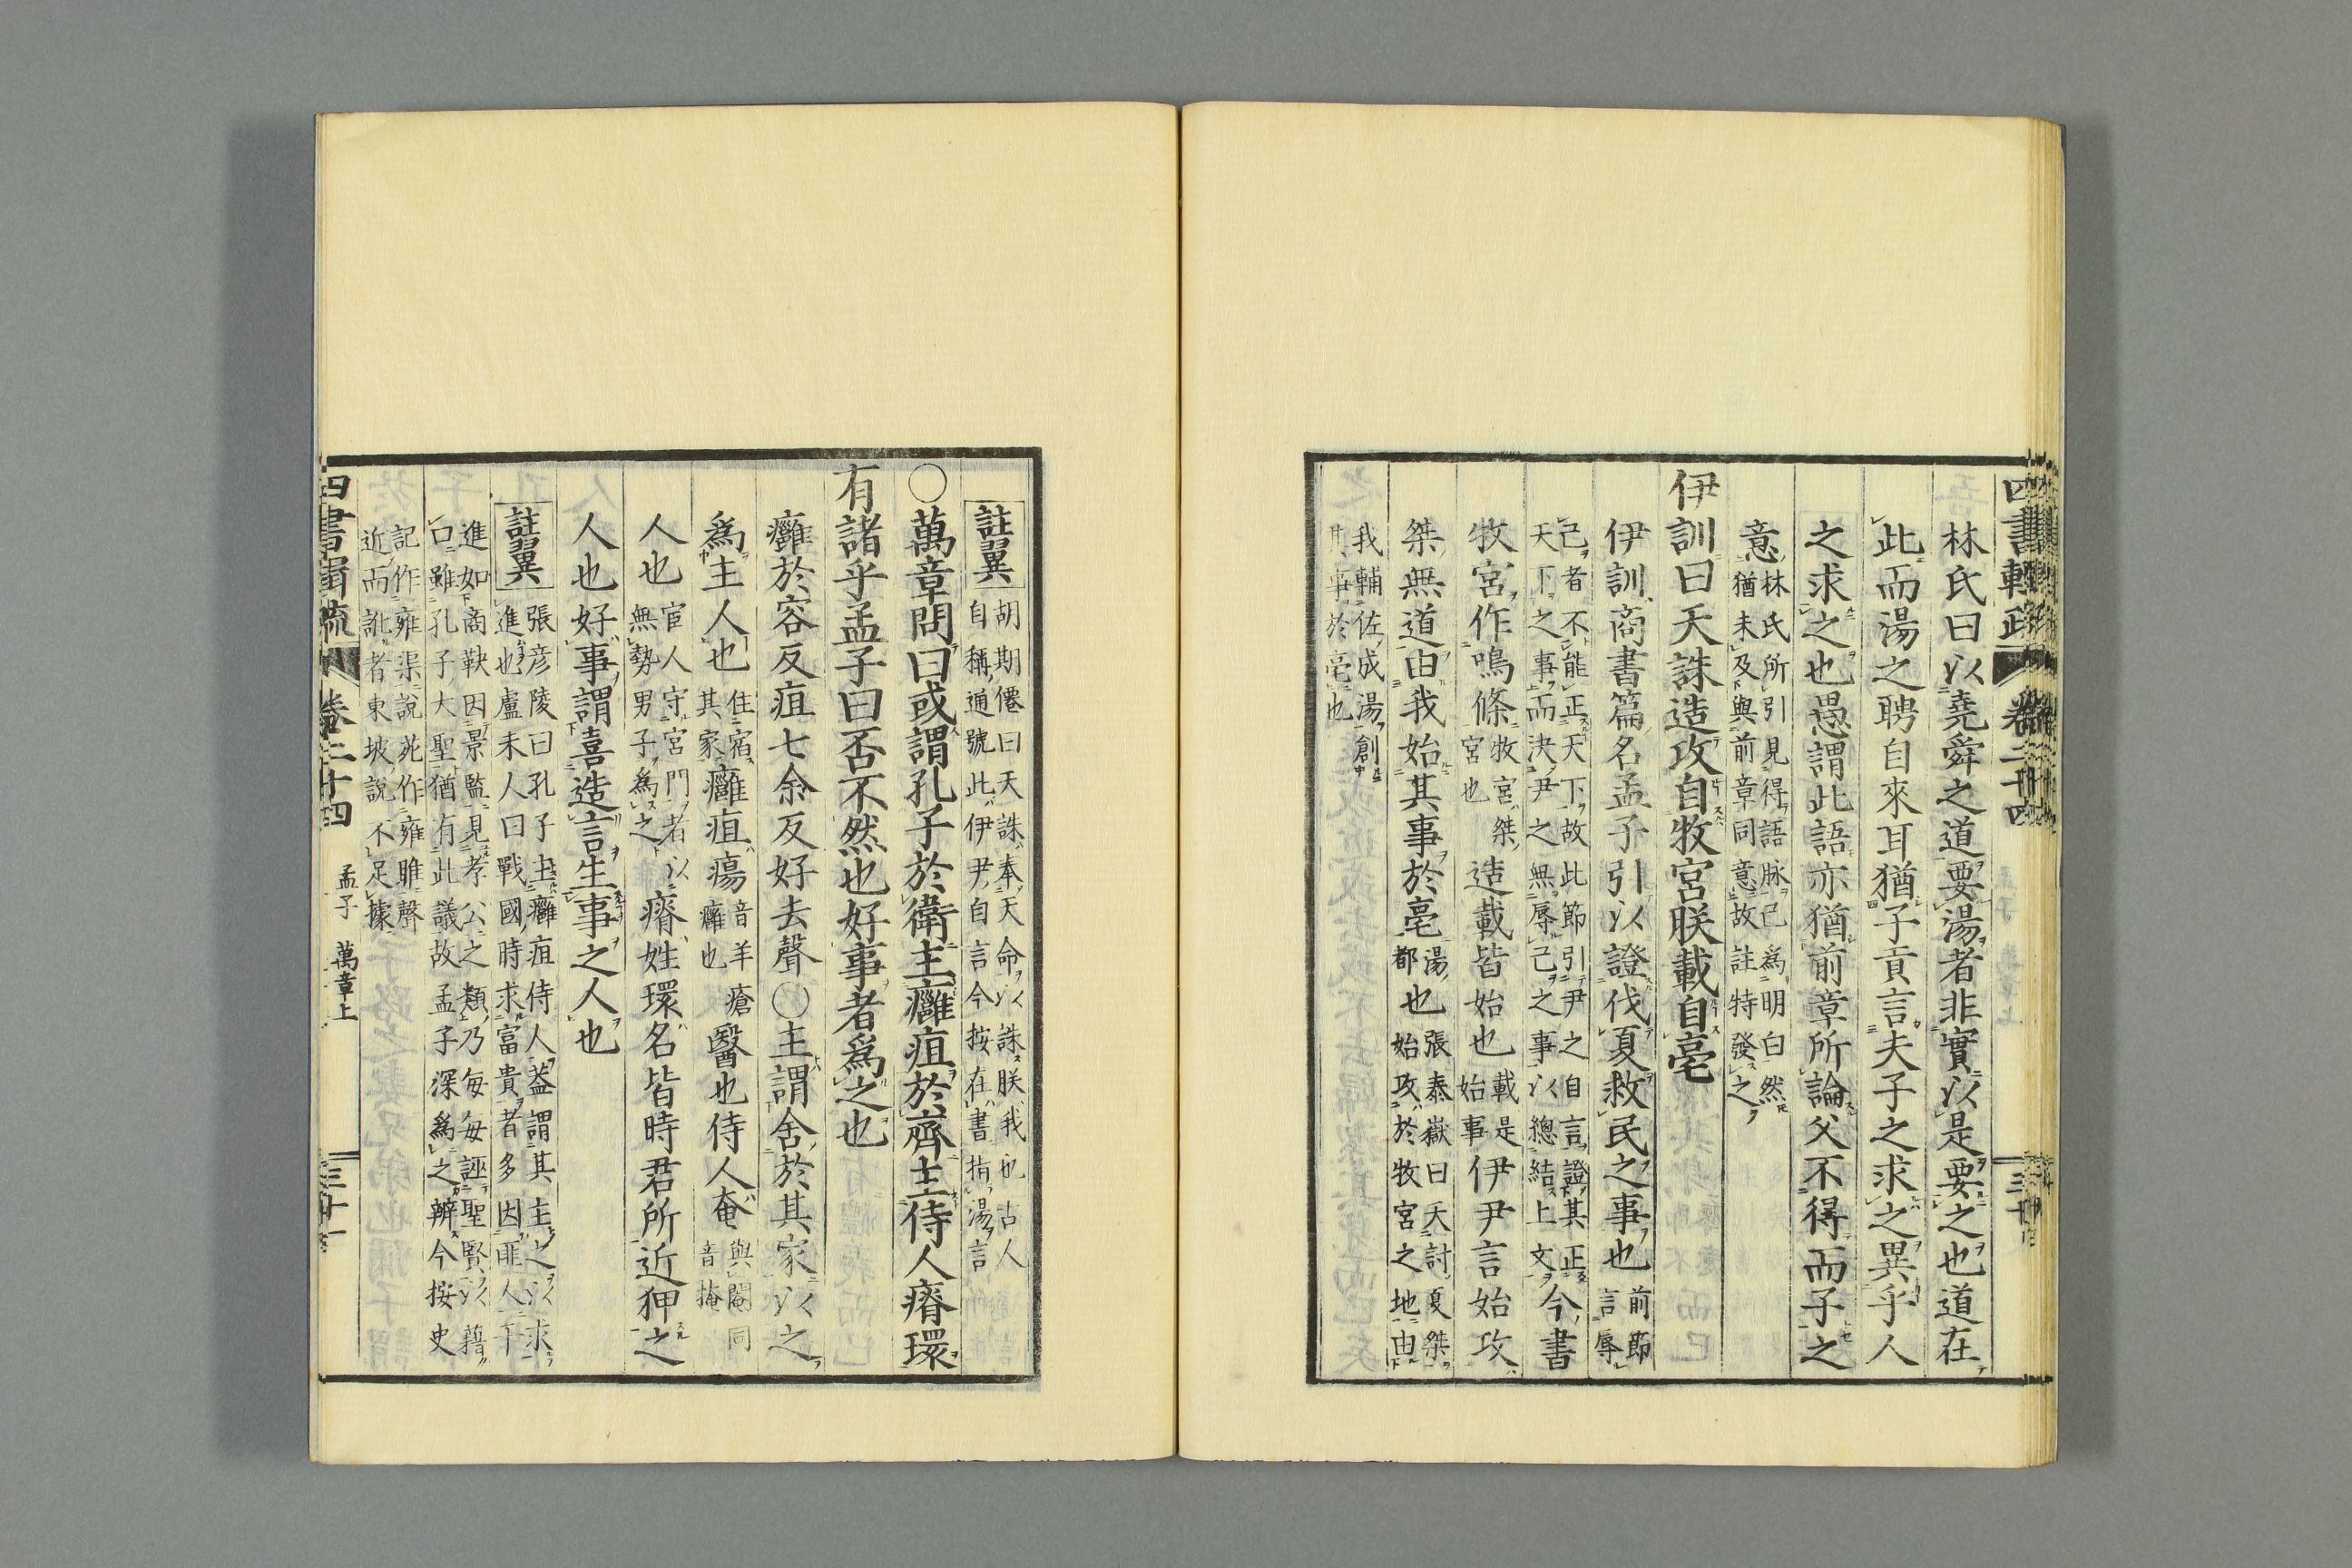 林氏曰以堯舜之道要湯者非實以是要之也道在
此而湯之聘自來耳猶子貢言夫子之求之異乎人
之求之也愚謂此語亦猶前章所論父不得而子之
意林氏所引見得語脉已爲明白然
猶未及與前章同意故註特發之
伊訓曰天誅造攻自牧宮朕載自亳
伊訓商書篇名孟子引以證伐夏救民之事也前節
言辱
己者不能正天下故此節引尹之自言證其正
天下之事而決尹之無辱己之事以總結上文今書
牧宮作鳴條牧宮桀
宮也造載皆始也載是
始事伊尹言始攻
桀無道由我始其事於亳湯
都也張泰嶽曰天討夏桀
始攻於牧宮之地由
我輔佐成湯創
其事於亳也
註翼
胡期僊曰天誅奉天命以誅朕我也古人
自稱通號此伊尹自言今按在書指湯言
○萬章問曰或謂孔子於衛主癰疽於齊主侍人瘠環
有諸乎孟子曰否不然也好事者爲之也
癰於容反疽七余反好去聲○主謂舍於其家以之
爲主人也住宿
其家癰疽瘍音羊瘡
癰也醫也侍人奄與閹同
音掩
人也宦人守宮門者以
無勢男子爲之瘠姓環名皆時君所近狎之
人也好事謂喜造言生事之人也
註翼
張彦陵曰孔子主癰疽侍人益謂其主之以求
進也盧未人曰戰國時求富貴者多因匪人干
進如商鞅因景監見孝公之類乃毎毎誣聖賢以藉
口雖孔子大聖猶有此議故孟子深爲之辨今按史
記作雍渠說苑作雍雎聲
近而訛者東坡說不足據
卷二十四
孟子 萬章上
三十一